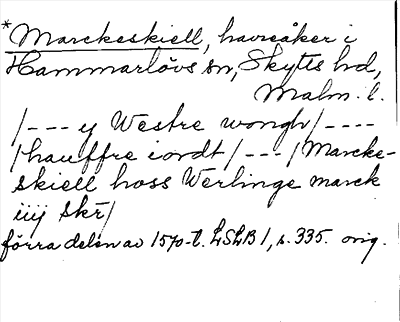 *Marckeskiell, havreåker i
Hammarlövs sn, Skytts hd,
Malm. l.
/--- y Westre wongh/----
/hauffre iordt/---/Marcke-
skiell hoss Werlinge marck
iiij skr/
förra delen av 1570-t. LSLB 1, s. 335. orig.